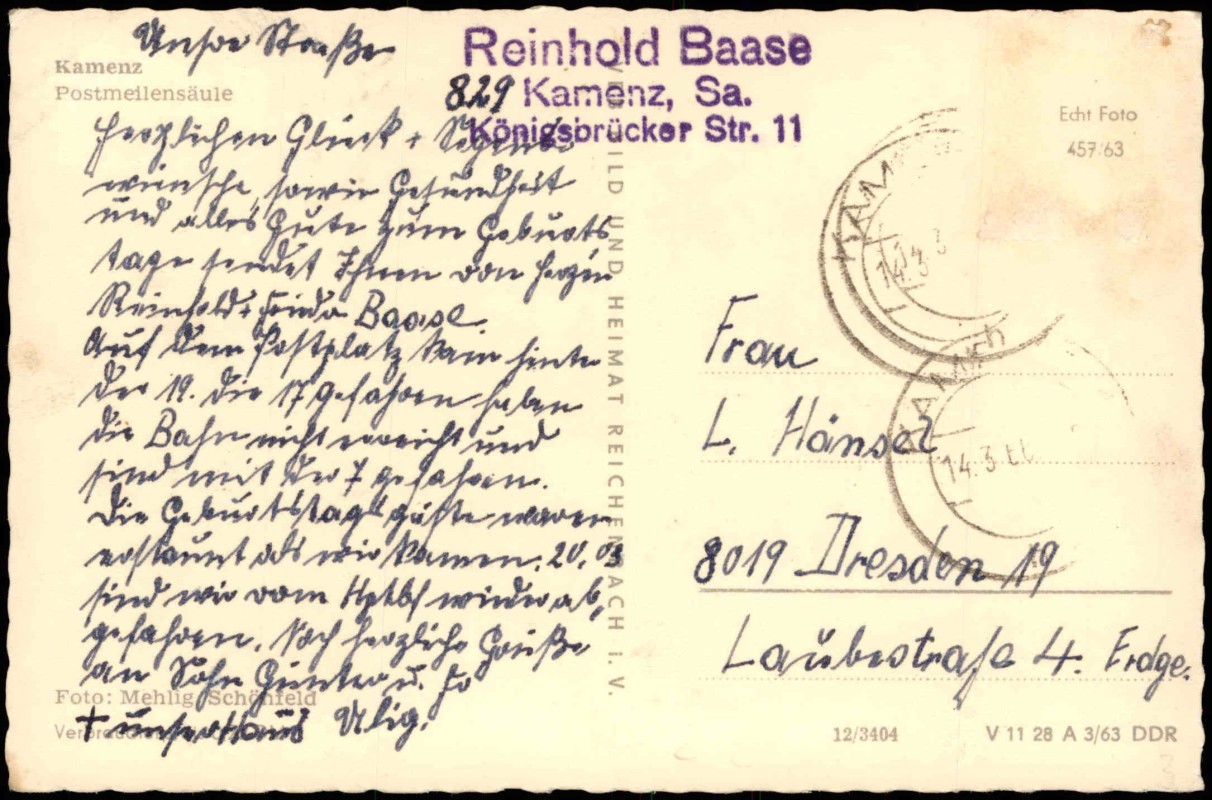 Unsre Straße
Kamenz
Postmeilensäule
Herzlichen Glück + Segens
wünsche, sowie Gesundheit
und alles Gute zum Geburts
tage sendet Ihnen von Herzen
Reinhold + Frida Baase.
Auf dem Postplatz kam hinter
der 19. die 17 gefahren haben
die Bahn nicht erreicht und
sind mit der 7 gefahren.
Die Geburtstagsgäste waren
erstaunt als wir kamen. 20.03
sind wir vom Hptbf wieder ab,
gefahren. Noch herzliche Grüße
an Sohn Günter u. Fr
Foto: Mehlig, Schönfeld
+ unser Haus Ulig.
VERLAG BILD UND HEIMAT REICHENBACH I. V.
Reinhold Baase
829 Kamenz, Sa.
Königsbrücker Str. 11
Echt Foto
457/63
KAMENZ
14.3
KAMENZ
14.3
Frau
L. Hänsel
8019 Dresden 19
Laubestraße 4. Erdge.
12/3404
V 11 28 A 3/63 DDR